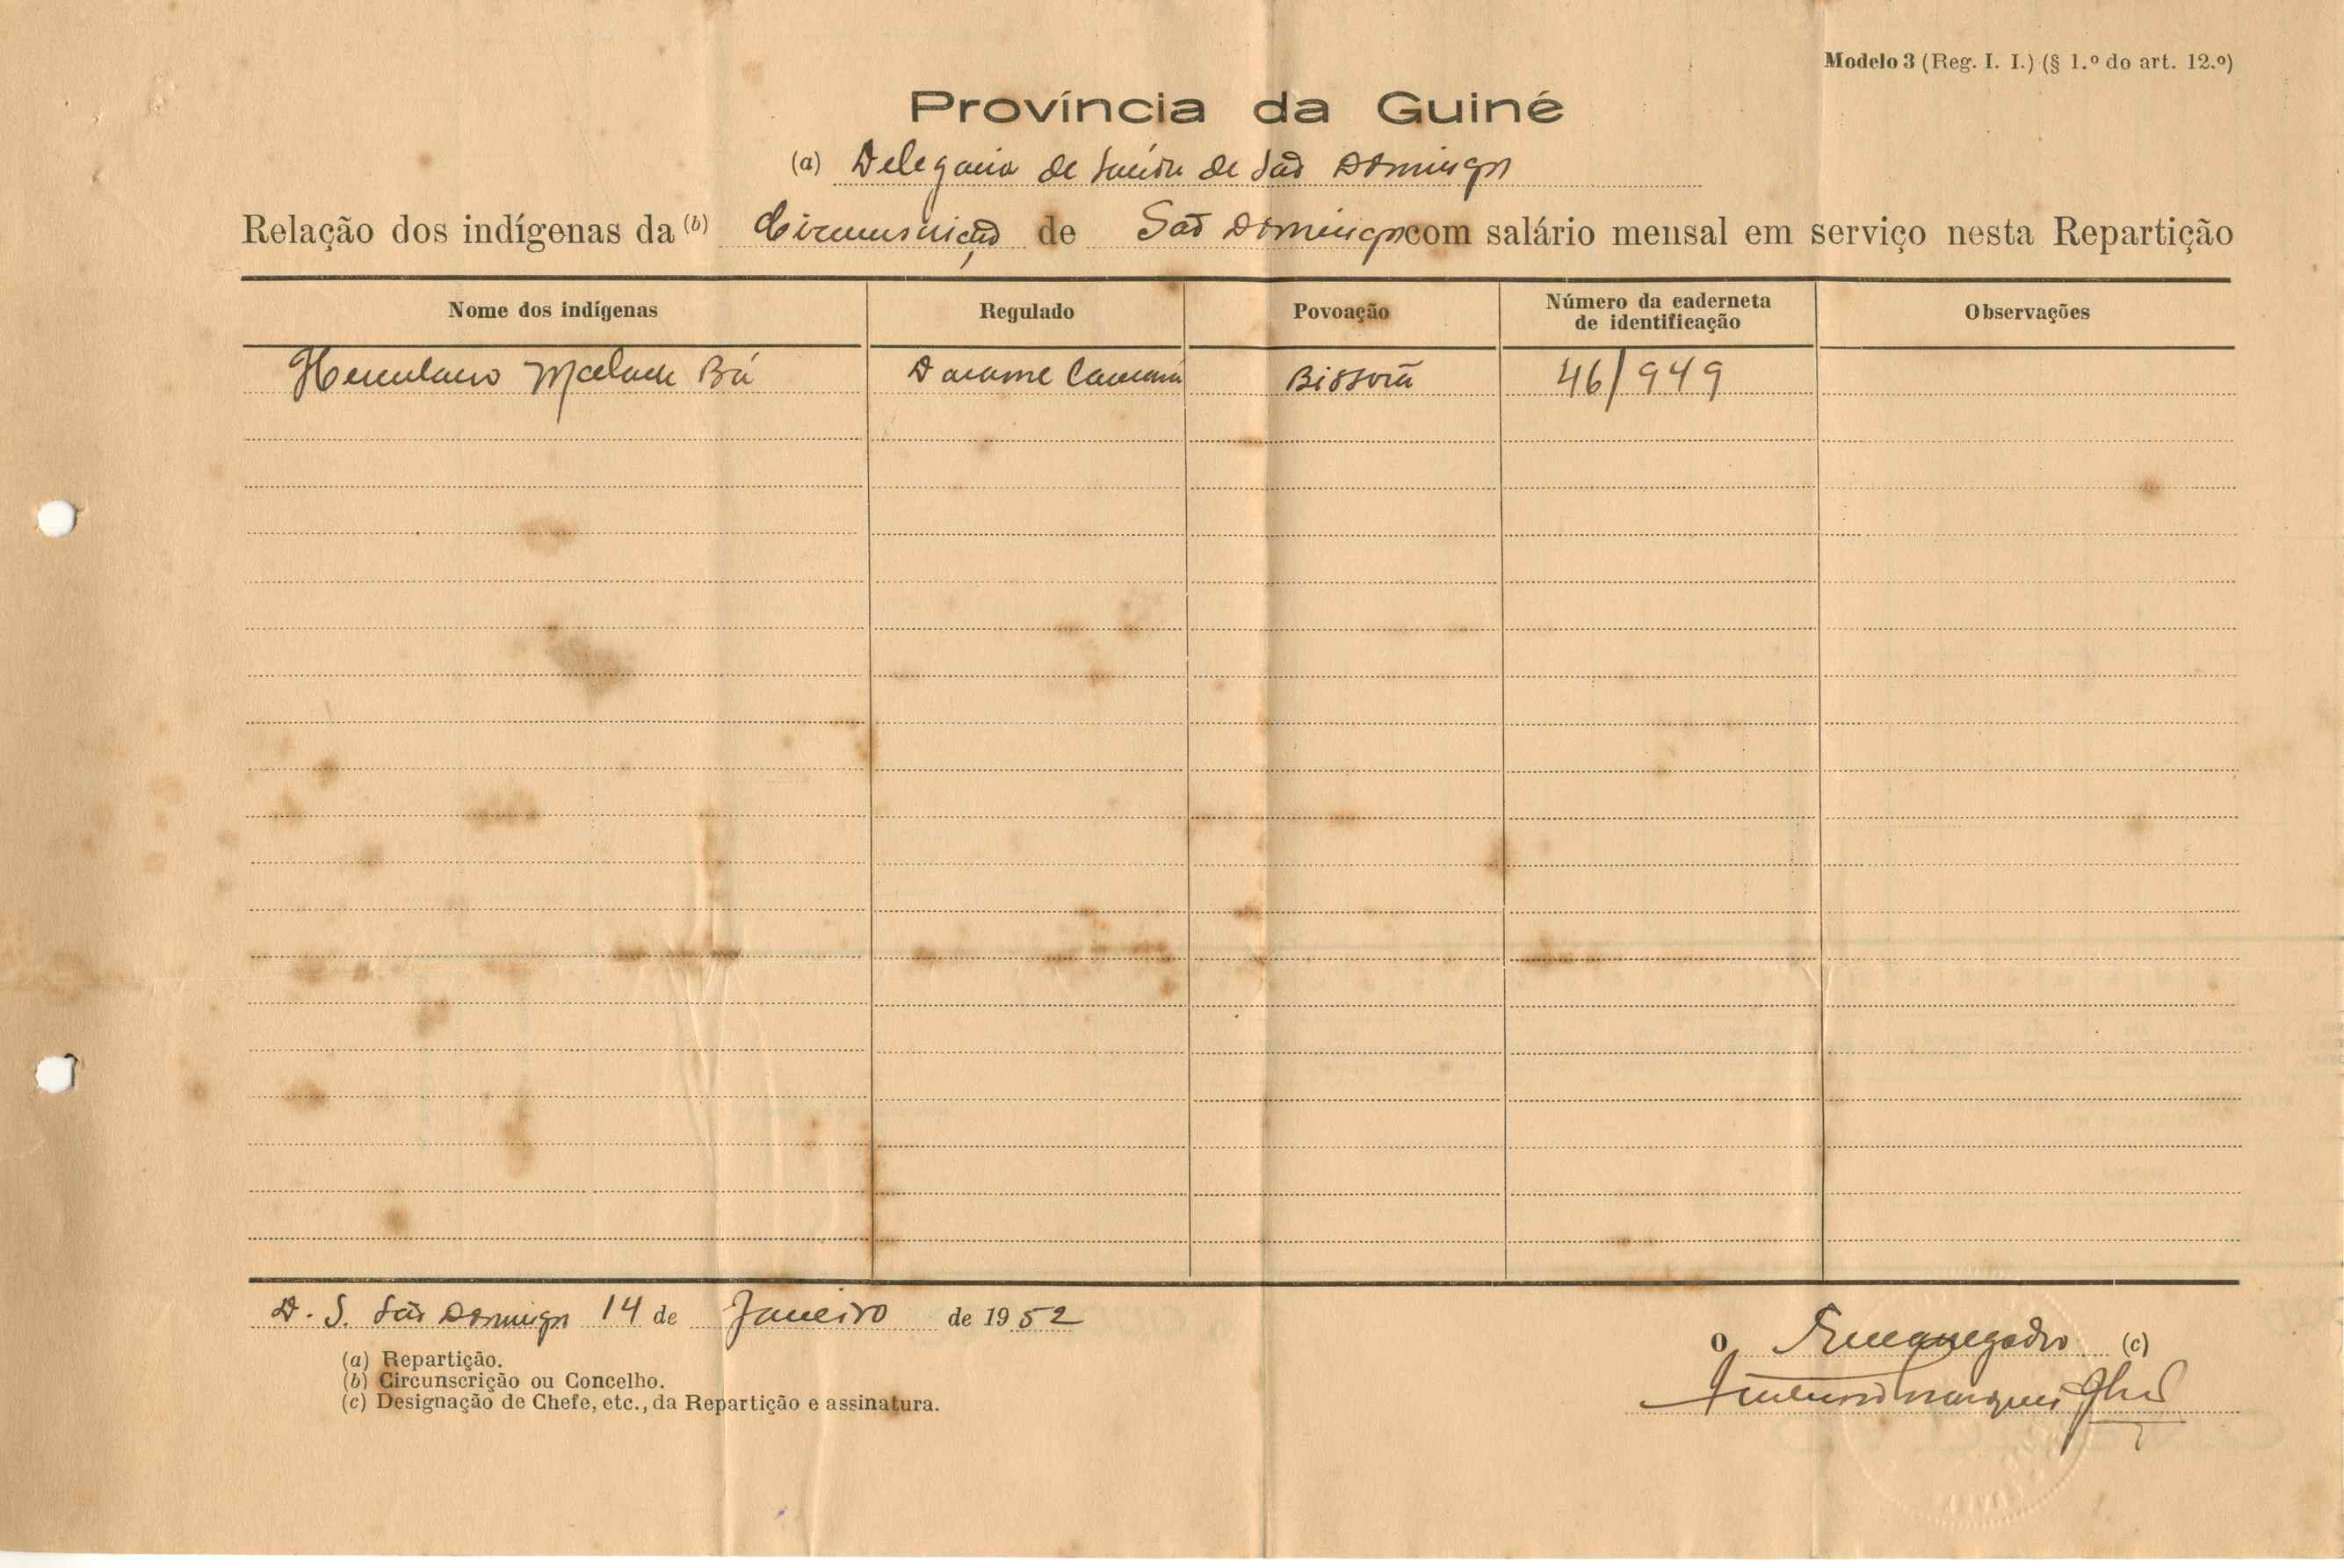 Modelo 3 (Reg. I. I.) (§ 1.º do art. 12.º)
Província da Guiné
(a) Delegacia de Saúde de São Domingos
Relação dos indígenas da (b) Circunscrição de São Domingos com salário mensal em serviço nesta Repartição
Nome dos indígenas Regulado Povoação Número da caderneta de identificação Observações
Herculano Bá Camará Bissorã 46/949
D. S. São Domingos 14 de Janeiro de 1952
(a) Repartição.
(b) Circunscrição ou Concelho.
(c) Designação de Chefe, etc., da Repartição e assinatura.
O Encarregado (c)
Marques